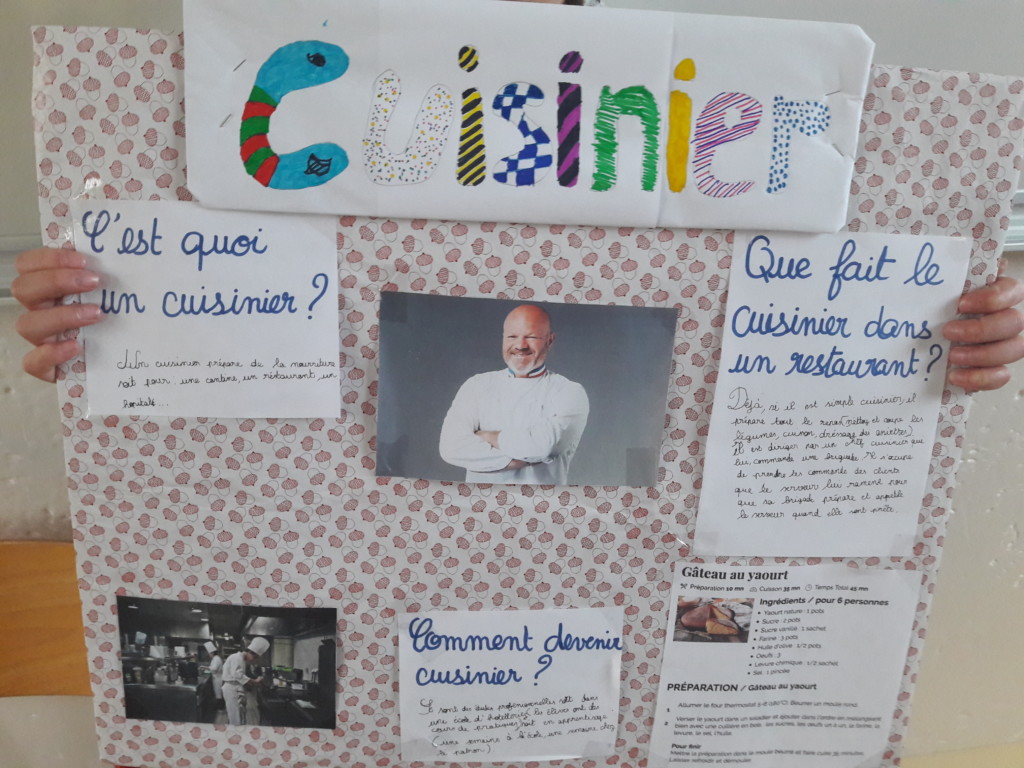 Cuisinier
C'est quoi
un cuisinier ?
Un cuisinier prépare de la nourriture
soit pour une cantine, un restaurant, un
Que fait le
cuisinier dans
un restaurant ?
Déjà, si il est simple cuisinier, il
prépare tout le repas (nettoy et coupe les
légumes, cuisson, dressage des assiettes)
Il est diriger par un chef cuisinier qui
lui commande une brigade. Il s'occupe
de prendre les commande des clients
que le serveur lui ramène pour
que sa brigade prépare et appelle
le serveur quand elle sont prête.
Comment devenir
cuisinier ?
Ce sont des études professionnelles soit dans
une école d'hotellerie, les élèves ont des
cours de pratiques, soit en apprentissage
(une semaine à l'école, une semaine chez
le patron).
Gâteau au yaourt
Préparation 10 mn Cuisson 35 mn Temps Total 45 mn
Ingrédients / pour 6 personnes
• Yaourt nature : 1 pots
• Sucre : 2 pots
• Sucre vanillé : 1 sachet
• Farine : 3 pots
• Huile d'olive : 1/2 pots
• Oeufs : 3
• Levure chimique : 1/2 sachet
• Sel : 1 pincée
PRÉPARATION / Gâteau au yaourt
1 Allumer le four thermostat 5-6 (180°C). Beurrer un moule rond.
2 Verser le yaourt dans un saladier et ajouter dans l'ordre en mélangeant
bien avec une cuillère en bois : les sucres, les œufs un à un, la farine, la
levure, le sel, l'huile.
Pour finir
Mettre la préparation dans le moule beurré et faire cuire 35 minutes.
Laisser refroidir et démouler.